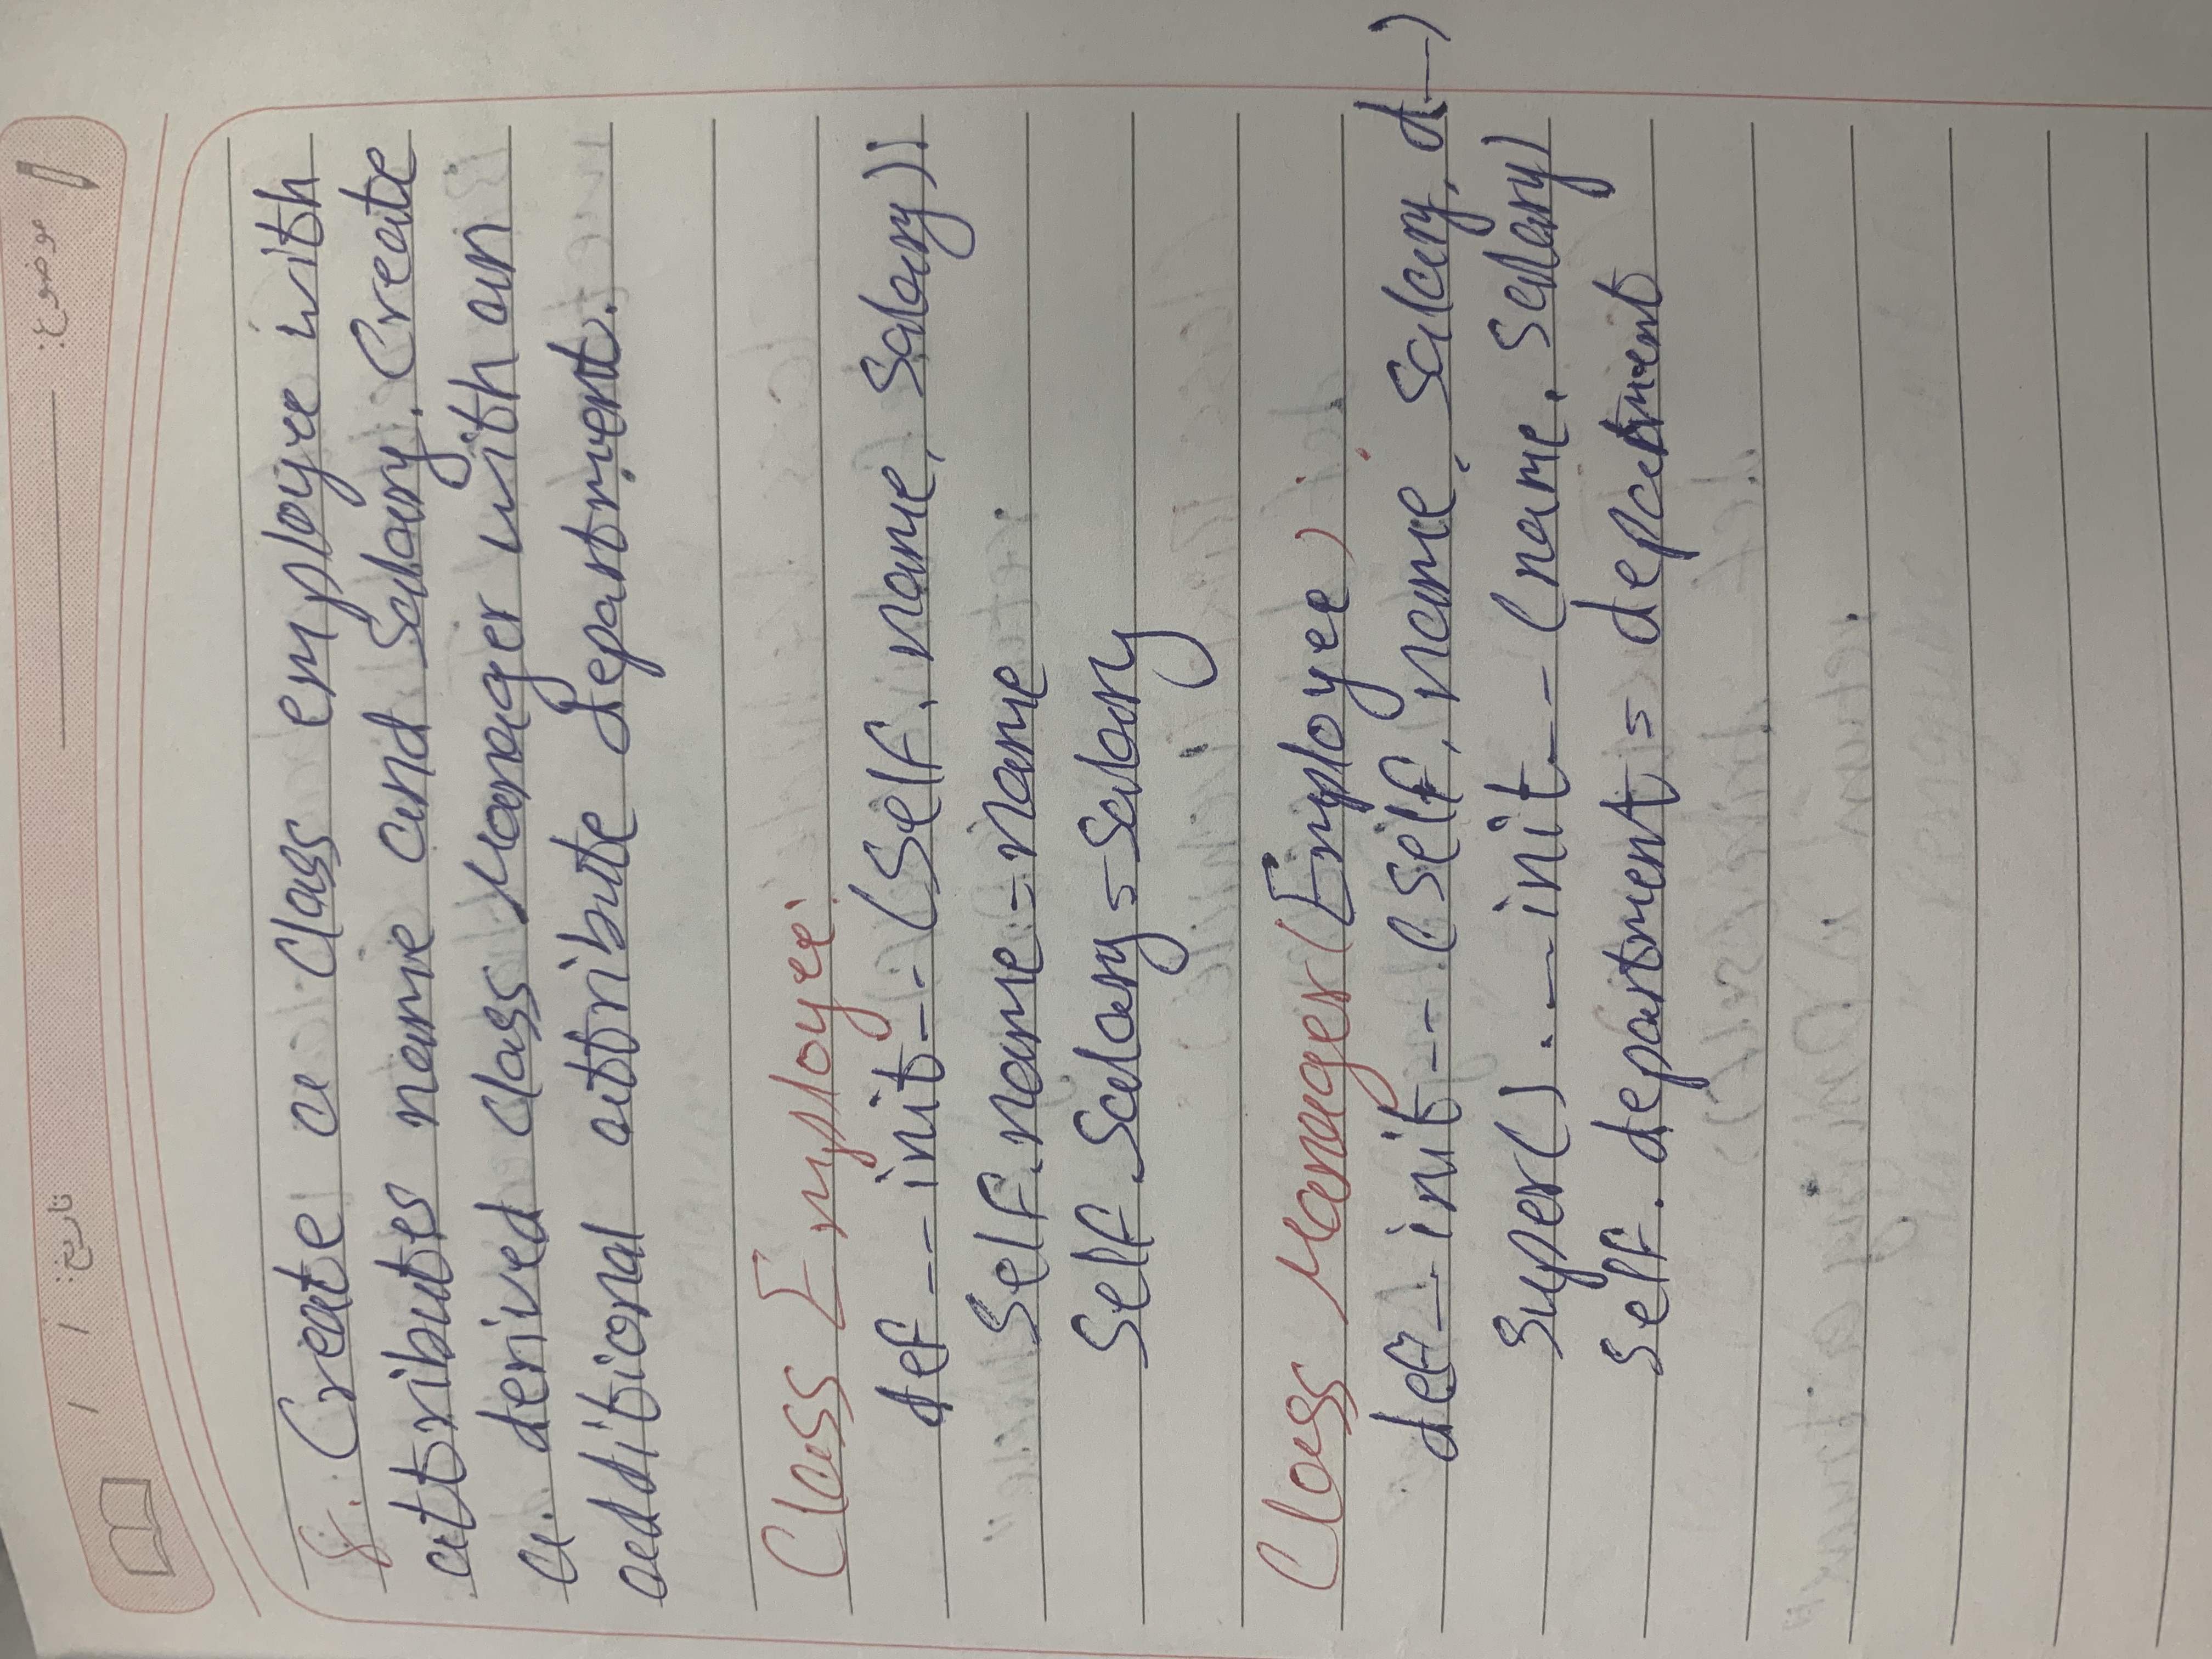 موضوع:
تاريخ: / /
8. Create a class employee with
attributes name and salary. Create
a derived class Manager with an
additional attribute department.
Class Employee:
def __init__(self, name, salary):
self.name = name
self.salary = salary
Class Manager(Employee):
def __init__(self, name, salary, d__)
super().__init__(name, salary)
self.department = department